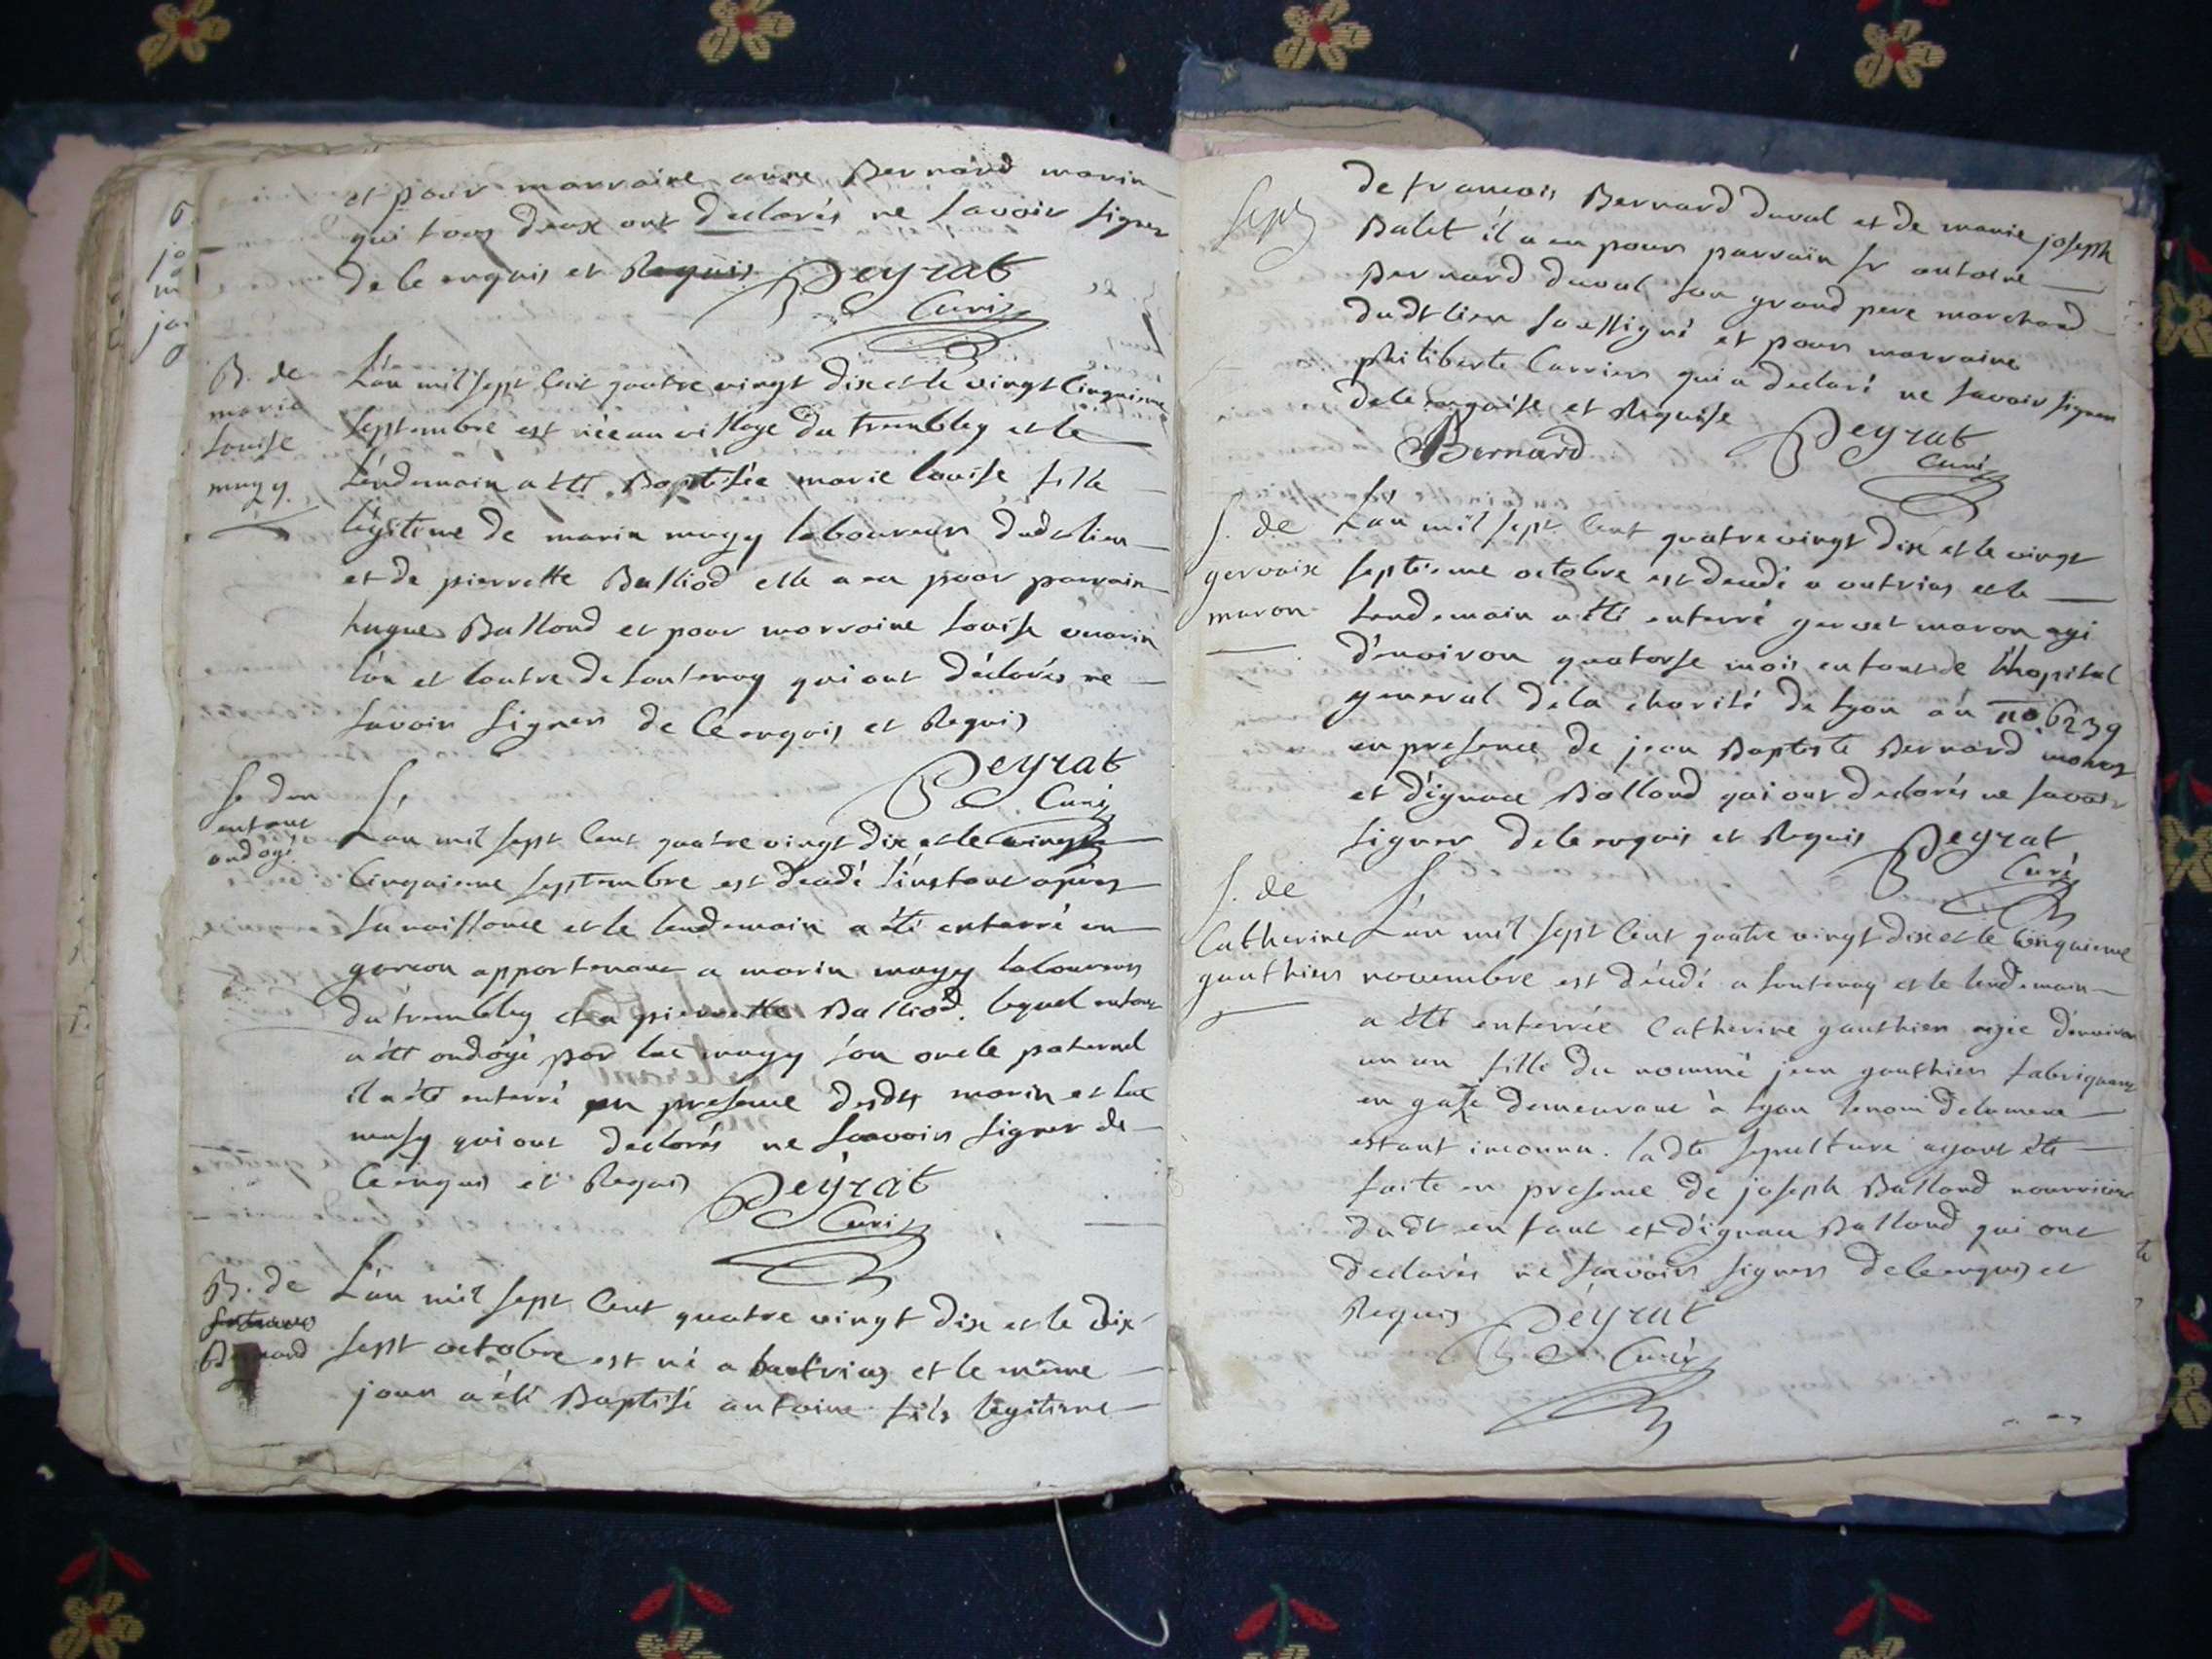 et pour marraine anne Bernard marin
qui tous deux ont declarés ne savoir signer
de ce enquis et Requis Peyrat
Curé
B. de
marie
Louise
mugy
L'an mil sept cent quatre vingt dix et le vingt cinquieme
septembre est née au village du trembley et le
lendemain a été Baptisée marie louise fille
légitime de marin mugy laboureur dudt lieu
et de pierrette Balliod elle a eu pour parrain
hugues Balland et pour marraine louise
l'un et l'autre de fontenay qui ont déclarés ne
savoir signer de ce enquis et Requis
Peyrat
Curé
S. d'un
enfant
ondoyé
L'an mil sept cent quatre vingt dix et le vingt
cinquieme septembre est decedé l'instant apres
sa naissance et le lendemain a été enterré un
garcon appartenant a marin mugy laboureur
du trembley et a pierrette Balliod. lequel enfant
a été ondoyé par luc mugy son oncle paternel
il a été enterré en presence desdts marin et luc
mugy qui ont declarés ne savoir signer de
ce enquis et Requis Peyrat
Curé
B. de
Bernard
L'an mil sept cent quatre vingt dix et le dix
sept octobre est né a outriaz et le même
jour a été Baptisé antoine fils legitime
de francois Bernard duval et de marie joseph
Balet il a eu pour parrain sr antoine
Bernard duval son grand pere marchand
dudt lieu soussigné et pour marraine
philiberte Carrier qui a declaré ne savoir signer
de ce enquise et Requise
Bernard Peyrat
Curé
S. de
gervaix
maron
L'an mil sept cent quatre vingt dix et le vingt
septieme octobre est decedé a outrias et le
lendemain a été enterré maron agé
d'environ quatorse mois enfant de l'hopital
general de la charité de lyon au no. 6239
en presence de jean Baptiste Bernard
et d'ignace Balland qui ont declarés ne savoir
signer de ce enquis et Requis Peyrat
Curé
S. de
Catherine
gauthier
L'an mil sept cent quatre vingt dix et le cinquieme
novembre est décédé a fontenay et le lendemain
a été enterrée Catherine gauthier agée d'environ
un an fille du nommé jean gauthier fabriquant
en gaze demeurant à lyon le nom de la mere
estant inconnu. ladte sepulture ayant été
faite en presence de joseph Balland nourricier
dudt enfant et d'ignace Balland qui ont
declarés ne savoir signer de ce enquis et
Requis Peyrat
Curé